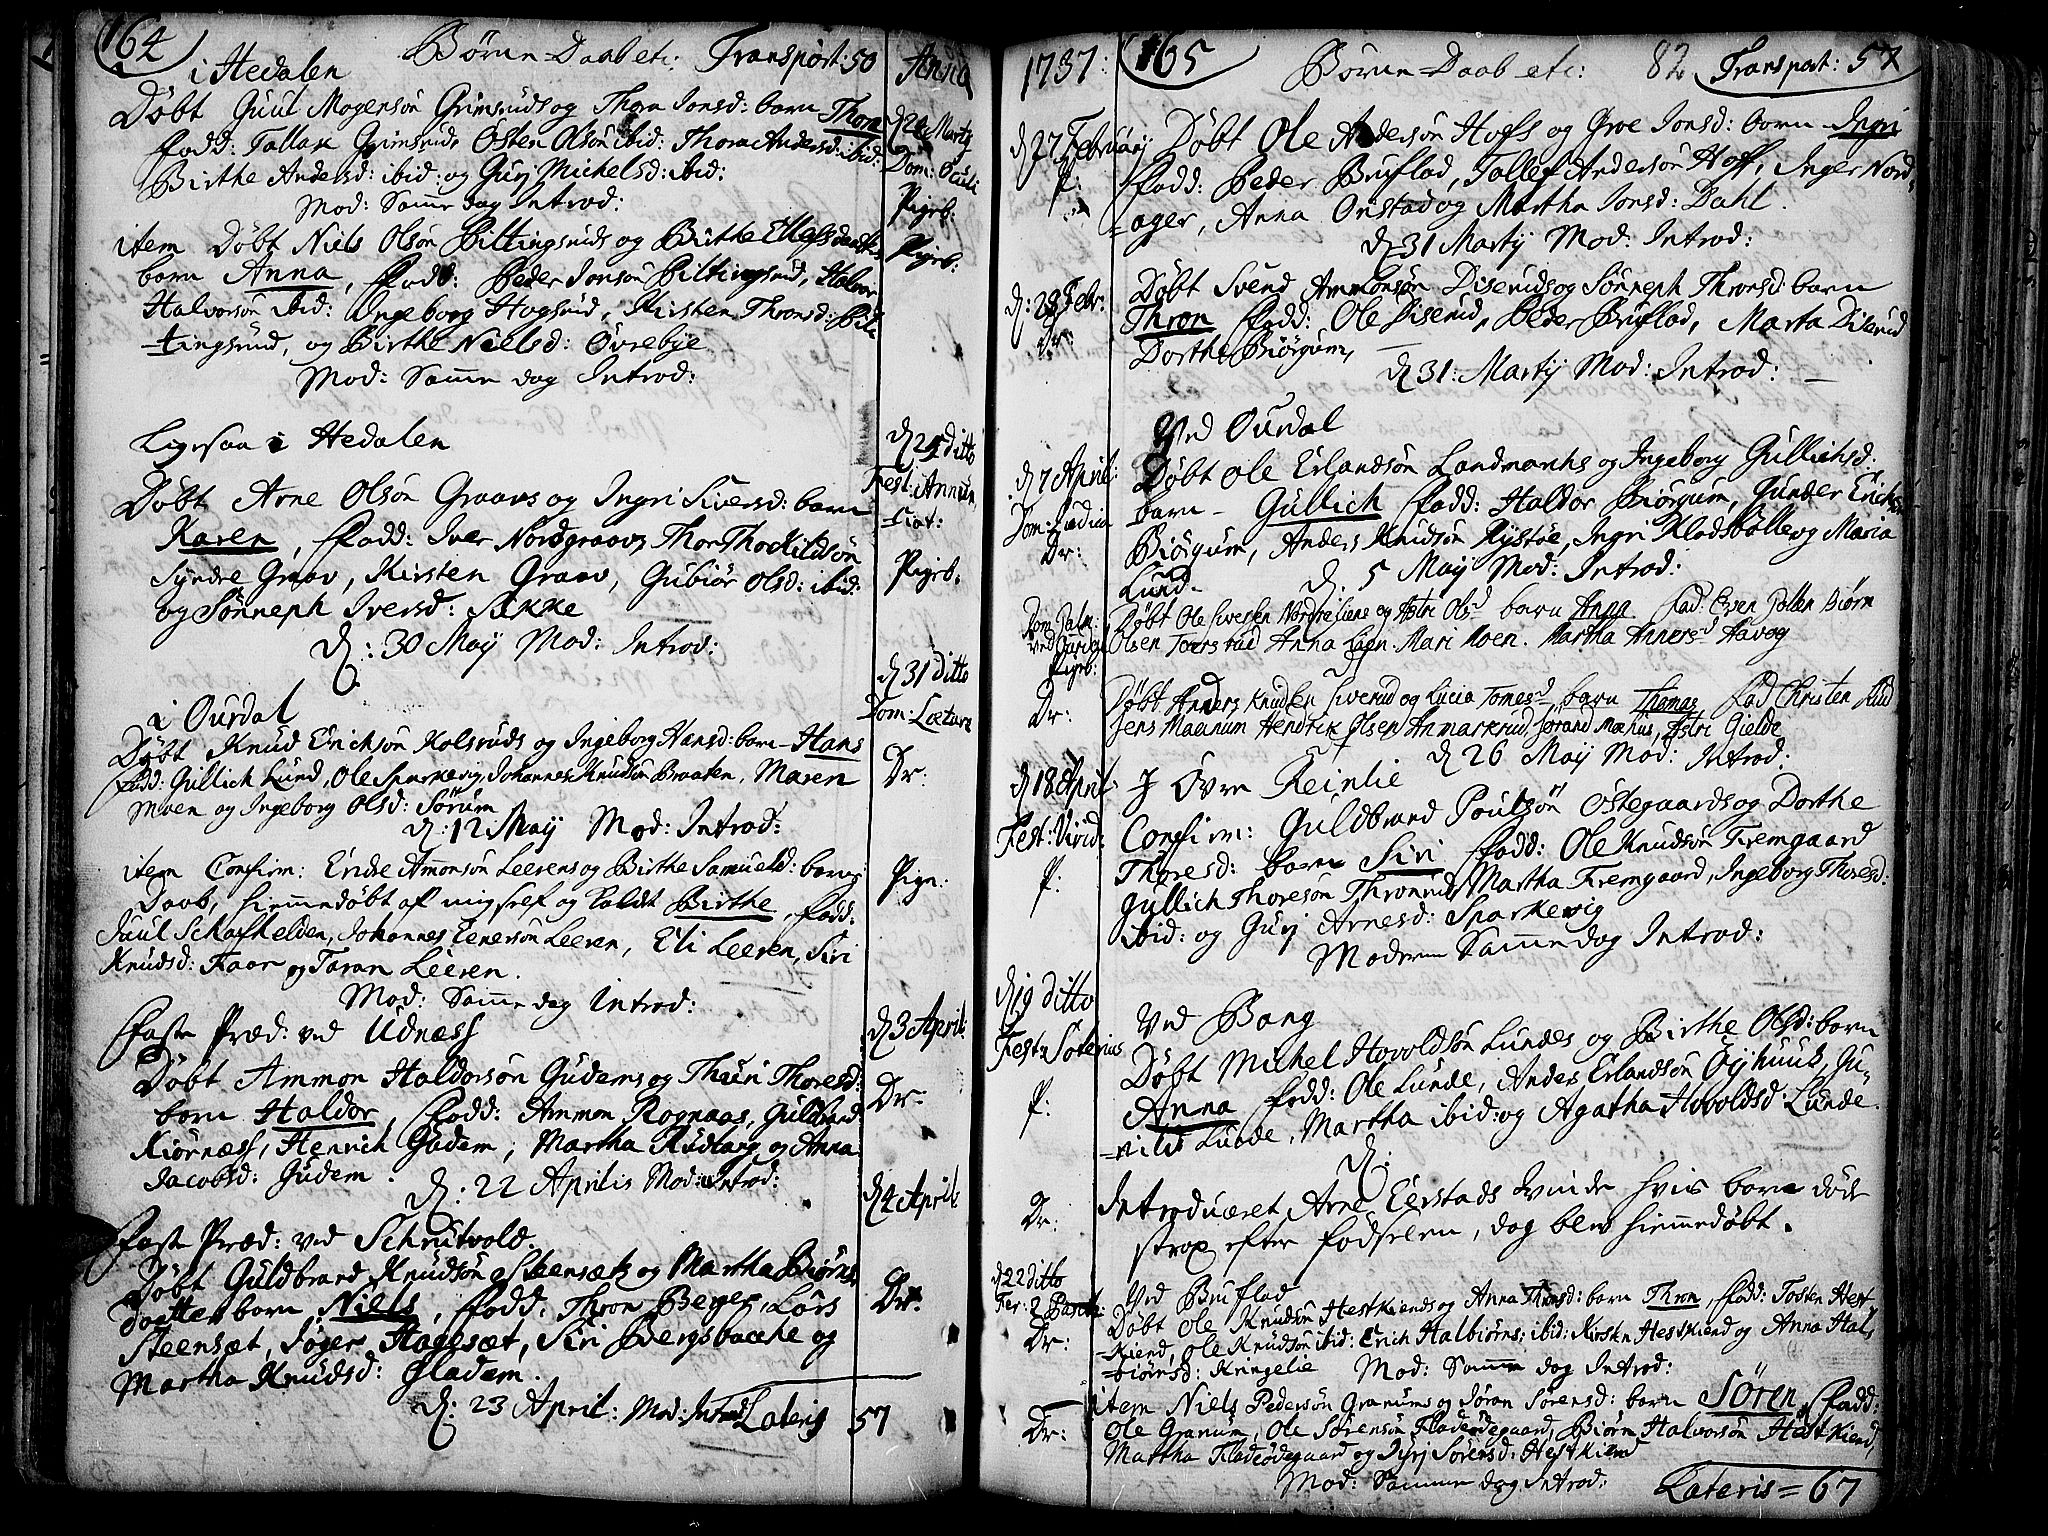 164 Børne-Daab etc: Transport: 50
i Hedalen
Døbt Guul Mogensøn Grimsruds og Thora Jonsd: barn Thora
fadd: Tallak Grimsrud, Osten Olsøn ibid: Thora Andersd: ibid:
Birthe Andersd: ibid: og Gurj Michelsd: ibid:
Mod: Samme dag Introd:
d 24 Martj
Dom: Oculi
Pigeb:
item Døbt Niels Olsøn Biltingsruds og Birthe
barn Anna, fadd: Peder Jonsøn Biltingsrud, Halvor
Halvorsøn ibid: Ingeborg Hogsrud, Kirsten Thronsd: Bil-
tingsrud, og Birthe Nielsd: Øvrebye
Mod: Samme dag Introd:
Pigeb:
Ligesaa i Hedalen
Døbt Arne Olsøn Graavs og Ingri Siversd: barn
Karen, fadd: Iver Nordgraav, Thor Thokildsøn
Syndre Graav, Kirsten Graav, Gubiør Olsd: ibid:
og Sønneph Iversd: Sikke
d: 30 Maij Mod: Introd:
d 25 ditto
Fest: Annun
ciat:
Pigeb:
i Ourdal
Døbt Knud Erichsøn Kolsruds og Ingeborg Hansd: barn Hans
fadd: Gullich Lund, Ole Sparkevig, Johannes Knudsøn Braaten, Maren
Moen og Ingeborg Olsd: Sørum
d: 12 Maij Mod: Introd:
d 31 ditto
Dom: Lætare
Dr:
item Confirm: Endre Amonsøn Leerens og Birthe Samuelsd: barns
Daab, hiemmedøbt af mig self og kaldt Birthe, fadd:
Juul Schafhelden, Johannes Eenersøn Leeren, Eli Leeren, Siri
Knudsd: Faar og Taran Leeren.
Mod: Samme dag Introd:
Pige:
Faste Præd: ved Udnæss
Døbt Ammon Haldorsøn Gudems og Thuri Thoresd:
barn Haldor, fadd: Ammon Rognaas, Guldbrand
Kiørnæss, Henrich Gudem, Martha Rudlang og Anna
Jacobsd: Gudem.
d: 22 Aprilis Mod: Introd:
d 3 April:
Dr:
Faste Præd: ved Schrutvold.
Døbt Guldbrand Knudsøn Steensæt og Martha Biørns
dotter barn Niels, fadd: Thron Berger, Lars
Steensæt, Joger Hagesæt, Siri Bergsbacche og
Martha Knudsd: Gladem.
d: 23 April: Mod: Introd:
d 4 April
Dr:
Lateris 57
1737: 165 Børne-Daab etc: 82 Transport: 57
d 27 Februarij Døbt Ole Andersøn Hoffs og Groe Jonsd: barn Ingri
P: fadd: Peder Bruflad, Tollef Andersøn Hoff, Inger Nord-
ager, Anna Onstad og Martha Jonsd: Dahl.
d 31 Martij Mod: Introd:
d: 28 Febr: Døbt Svend Ammonsøn Diseruds og Sønneph Thronsd: barn
Dr: Thron, fadd: Ole Diserud, Peder Bruflad, Marta Diserud
Dorthe Biørgum,
d 31: Martij Mod: Introd:
Ved Ourdal
d 7 April: Døbt Ole Erlandsøn Landmarks og Ingeborg Gullichsd:
Dom: Judica barn Gullich fadd: Haldor Biørgum, Gunder Erichsøn
Dr: Biørgum, Anders Knudsøn Rystøe, Ingri Kladsballe og Maria
Lund. d: 5 Maij Mod: Introd:
Dom: Palm: Døbt Ole Siversen Nordreliens og Astri Olsd barn Anna fad: Even Gollen Biørn
ved Ourdal Olsen Toerstad Anna Lien. Mari Moen. Martha Anersd Aavog
Pigeb:
Dr: Døbt Anders Knudsen Siverud og Lucia Tomesd barn Thomas fad Christen Lund
Jens Maanum Hendrik Olsen Anmarkrud, Jørand Mæhus, Astri Gielde
d 26 Maij Mod: Introd:
d 18 April I Øvre Reinlie
Fest: Virid: Confirm: Guldbrand Poulsøn Ostegaards og Dorthe
P: Thoresd: barn Siri fadd: Ole Knudsøn Fremgaard
Gullich Thoresøn Thronrud, Martha Fremgaard, Ingeborg Thoresd:
ibid: og Gurj Arnesd: Sparkevig
Moderen Samme dag Introd:
d 19 ditto Ved Bang
Fest: Soterius Døbt Michel Hovoldsøn Lundes og Birthe Olsd: barn
P: Anna fadd: Ole Lunde, Anders Erlandsøn Øyhuus, Gu-
nild Lunde, Martha ibid: og Agatha Hovoldsd: Lunde.
d:
Dr: Introduceret Arne Eerstads qvinde hvis barn døde
strax efter fødselen, dog blev hiemmedøbt.
d 22 ditto Ved Bruflad
Fer: 2 Pasch: Døbt Ole Knudsøn Hestkiends og Anna Thronsd: barn Thron, fadd: Tosten Hest-
Dr: kiend, Ole Knudsøn ibid: Erich Halbiørns: ibid: Kirsten Hestkiend og Anna Hal-
biørnsd: Kringelie Mod: Samme dag Introd:
item Niels Pedersøn Granums og Jøran Sørensd: barn Søren, fadd:
Dr: Ole Granum, Ole Sørensøn Fladeødegaard, Biørn Halvorsøn Hestkiend,
Martha Fladeødegaard og Gurj Sørensd: Hestkiend
Mod: Samme dag Introd:
Lateris = 67